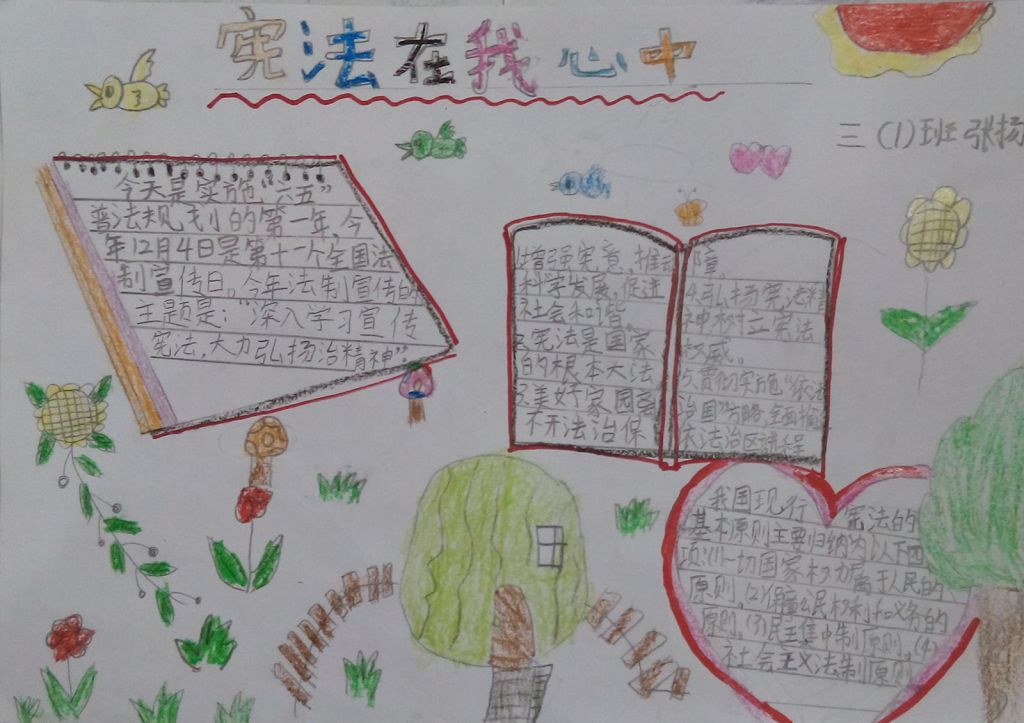 宪法在我心中
三(1)班 张扬
今天是实施“六五”
普法规划的第一年,今
年12月4日是第十一个全国法
制宣传日。今年法制宣传的
主题是:“深入学习宣传
宪法,大力弘扬治精神”.
1.增强宪意、推动
科学发展,促进
社会和谐.
2.宪法是国家
的根本大法
3.美好家园离
不开法治保
障.
4.弘扬宪法精
神树立宪法
权威。
5.贯彻实施“依法
治国”方略,全面推
依法治区进程
我国现行 宪法的
基本原则主要归纳为以下四
项:(1)一切国家权力属于人民的
原则,(2)保障公民权利和义务的
原则,(3)民主集中制原则,(4)
社会主义法制原则